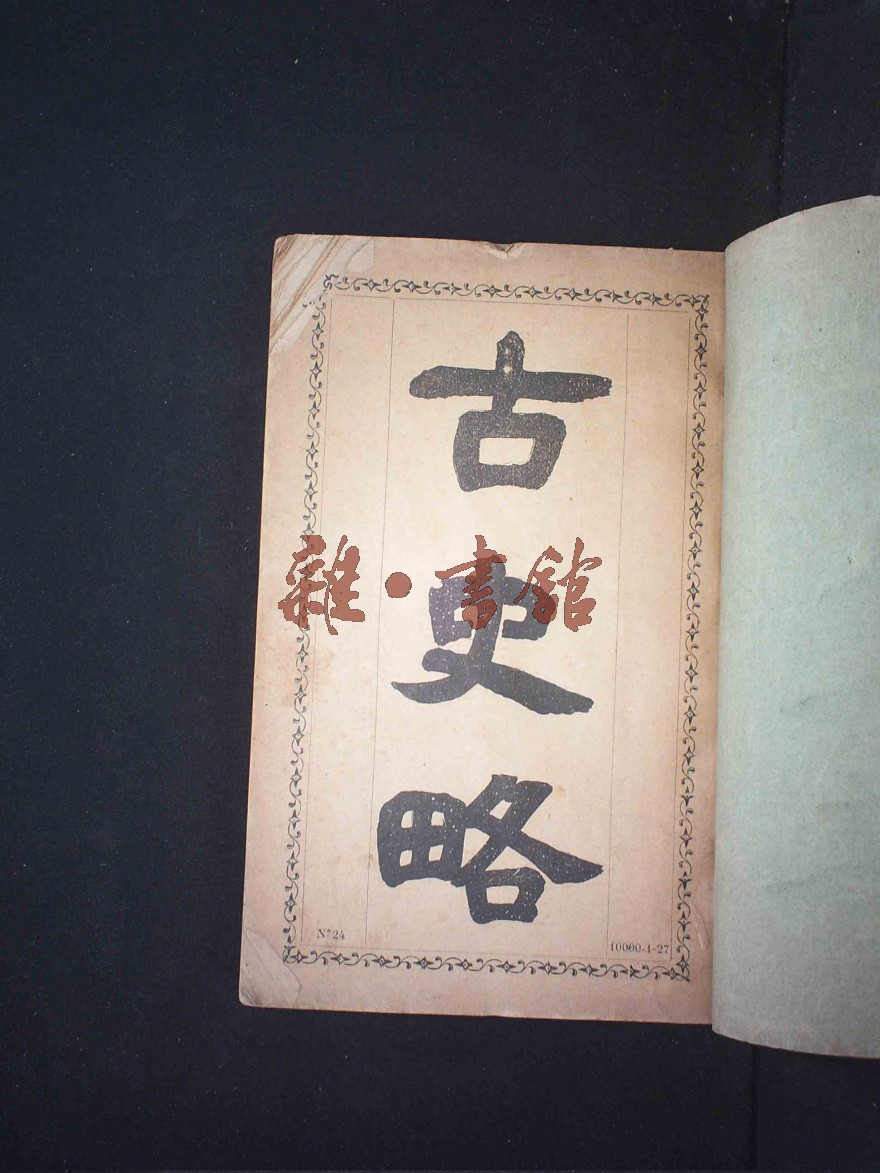 古史略
雜·書館
Nº 24
10000-1-27